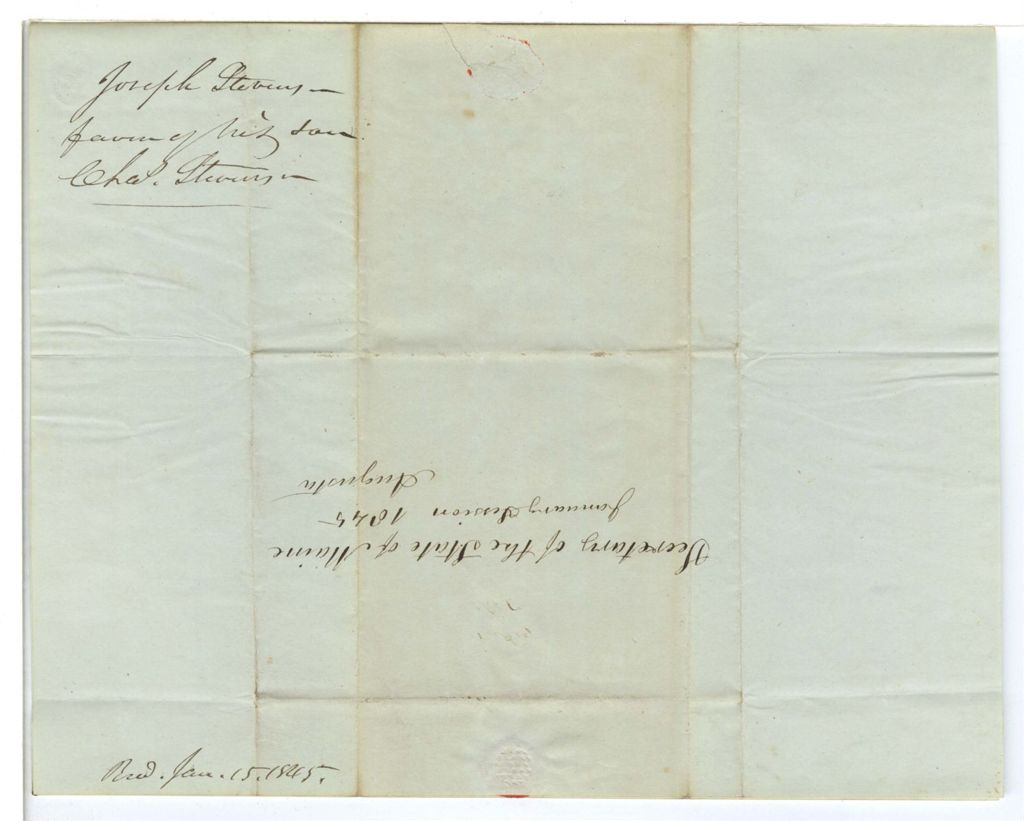 Joseph Stevens
favor of his son
Chas. Stevens
Secretary of the State of Maine
January Session 1845
Augusta
Recd. Jan. 15. 1845.